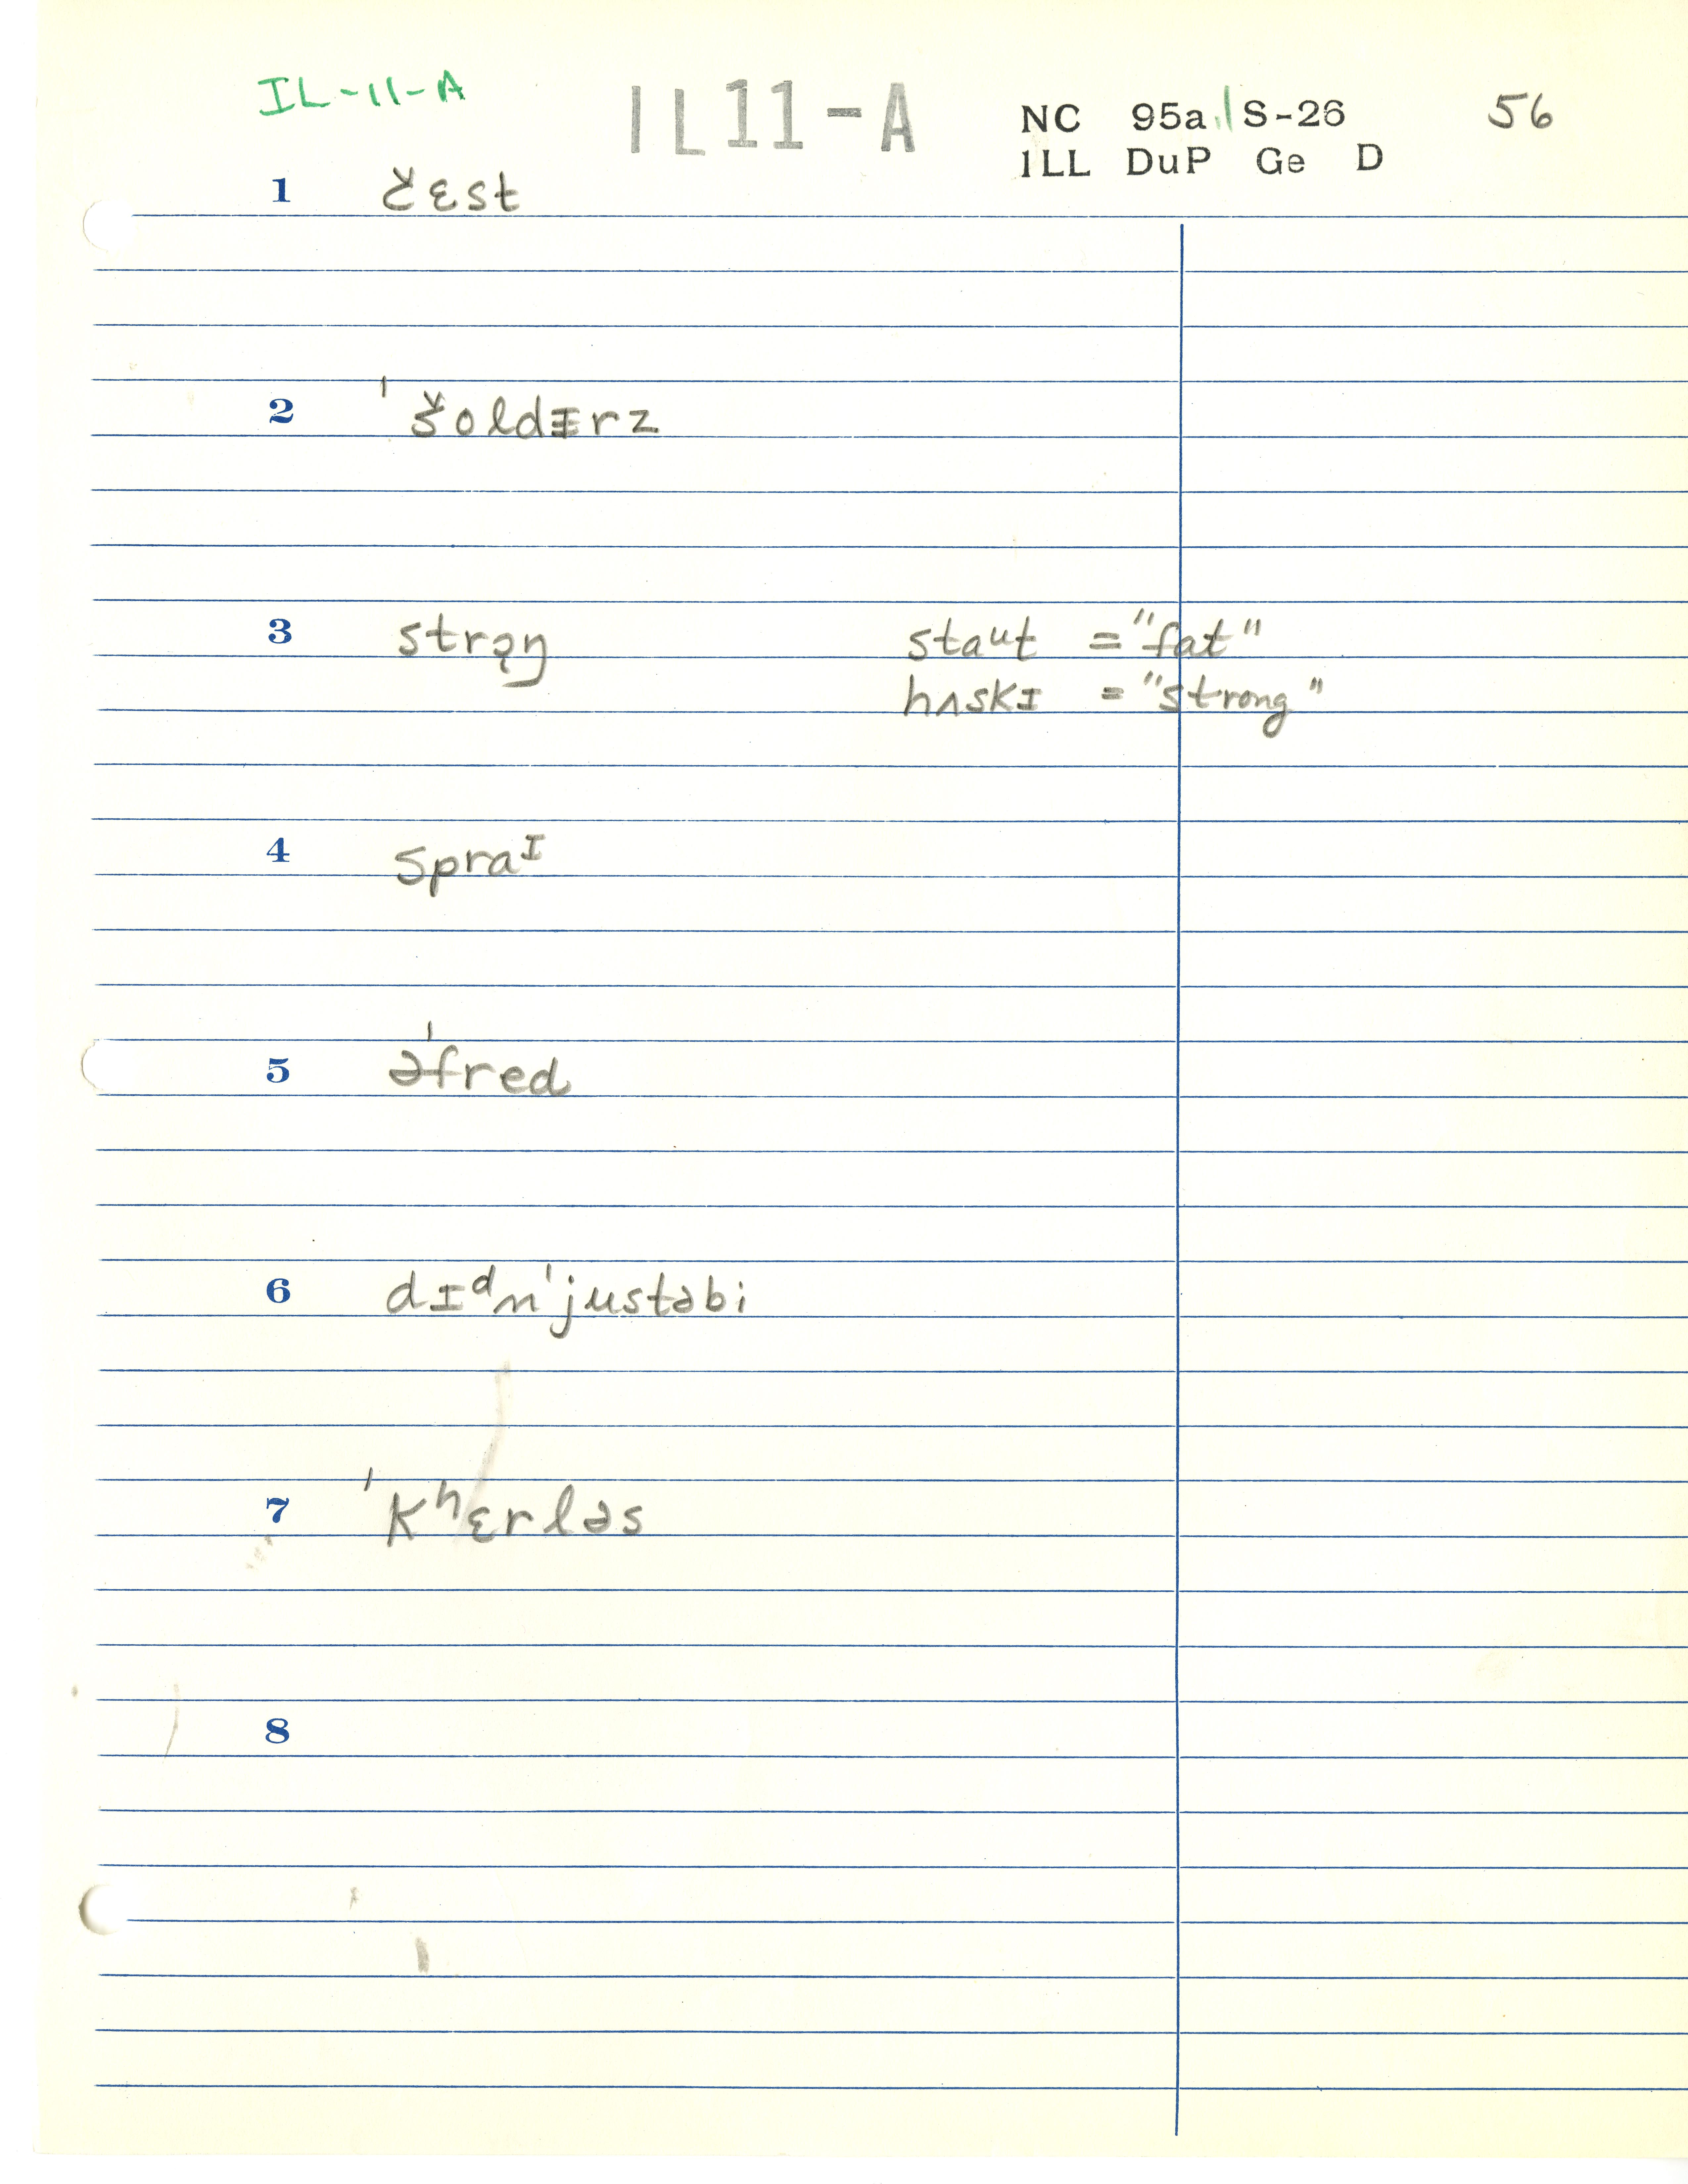 IL-11-A IL11-A NC 95a.1 S-26 56
ILL DuP Ge D
1 čɛst
2 ˈšoldɪrz
3 strǫŋ staᵘt = "fat"
hʌskɪ = "strong"
4 spraᴵ
5 əˈfred
6 dɪᵈnˈjustəbi
7 ˈkʰɛrləs
8